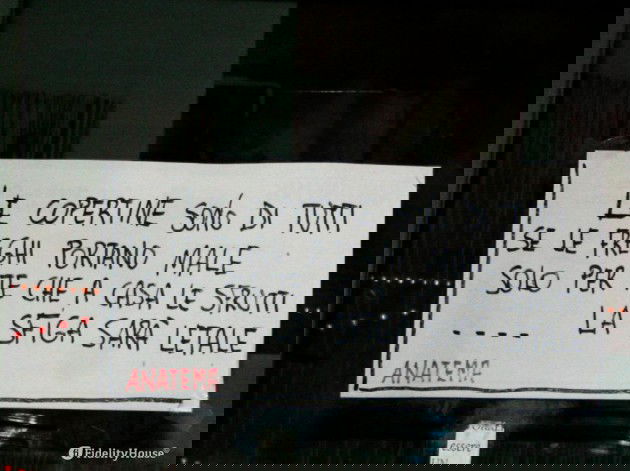 LE COPERTINE SONO DI TUTTI
SE LE FREGHI PORTANO MALE
SOLO PER TE CHE A CASA LE SFRUTTI
.... LA SFIGA SARÀ LETALE
ANATEMA ANATEMA
essere
FidelityHouse